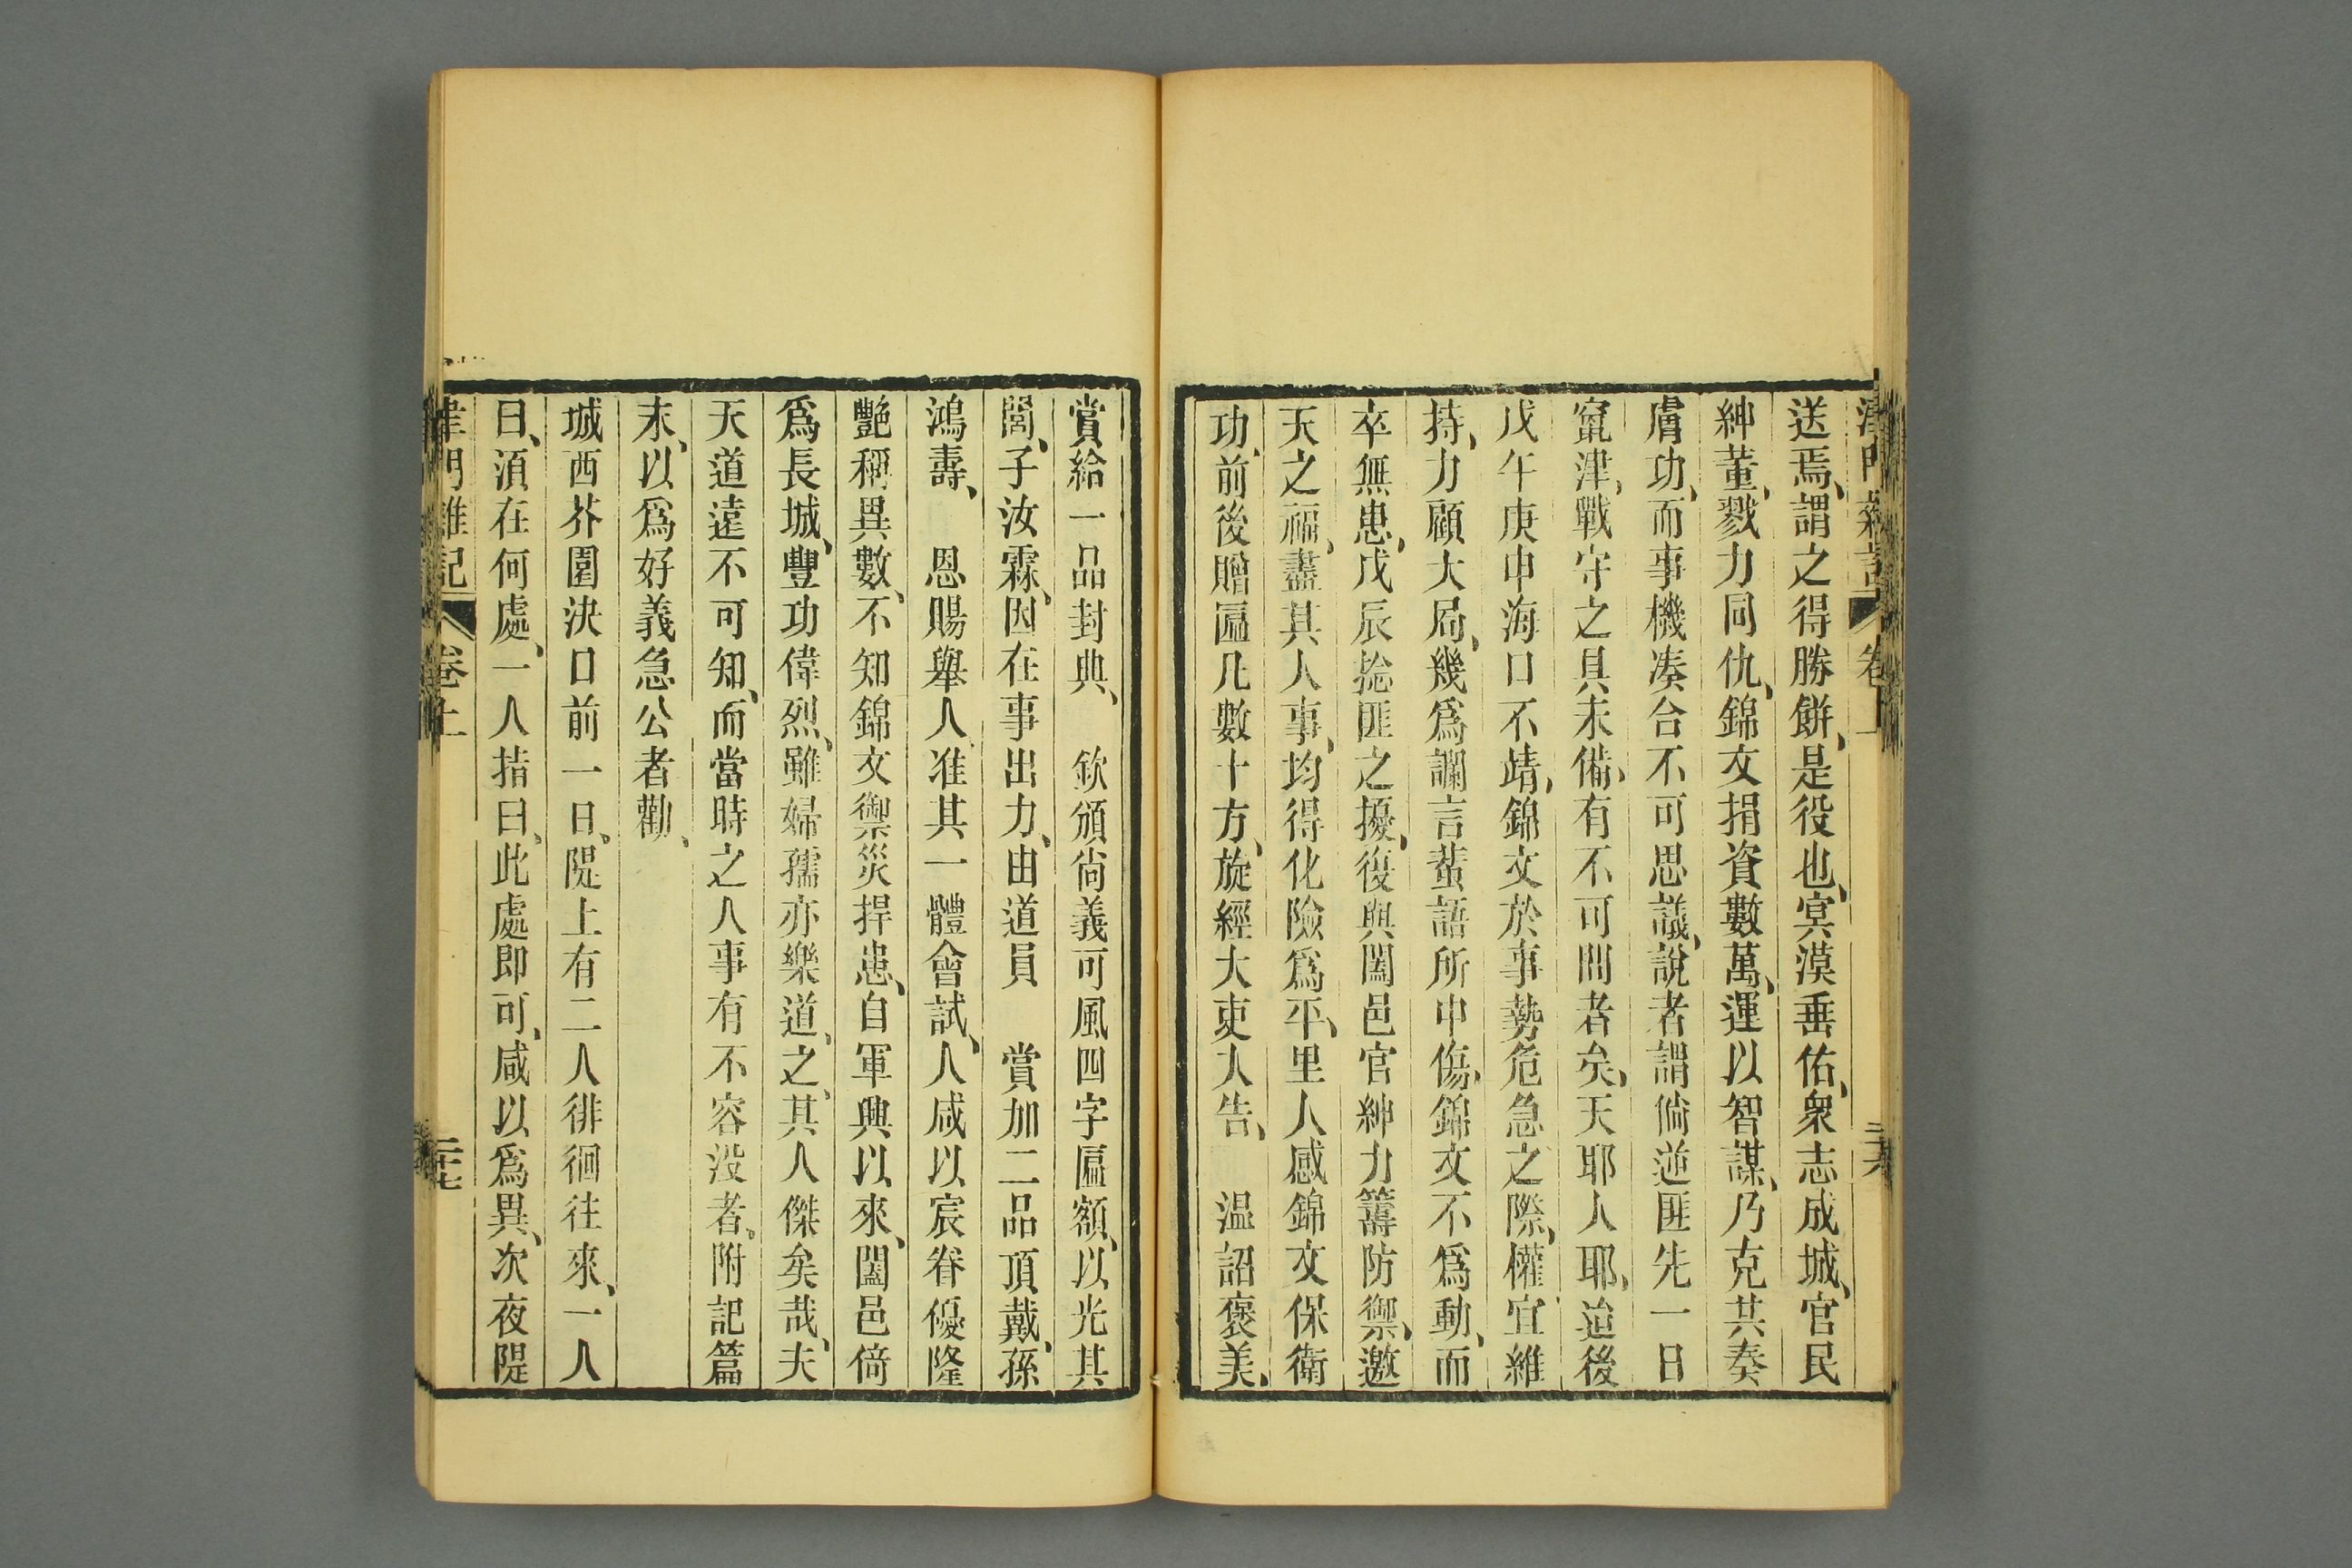 津門雜記 卷上 二十六
送焉、謂之得勝餅、是役也、冥漠垂佑、衆志成城、官民
紳董、戮力同仇、錦文捐資數萬、運以智謀、乃克共奏
膚功、而事機湊合不可思議、說者謂倘逆匪先一日
竄津、戰守之具未備、有不可問者矣、天耶人耶、迨後
戊午庚申海口不靖、錦文於事勢危急之際、權宜維
持、力顧大局、幾爲讕言蜚語所中傷、錦文不爲動、而
卒無患、戊辰捻匪之擾、復與闔邑官紳力籌防禦、邀
天之福、盡其人事、均得化險爲平、里人感錦文保衛
功、前後贈匾几數十方、旋經大吏入告、　温詔褒美、
賞給一品封典、　欽頒尙義可風四字匾額、以光其
閭、子汝霖、因在事出力、由道員　賞加二品頂戴、孫
鴻壽、　恩賜舉人、准其一體會試、人咸以宸眷優隆
艷稱異數、不知錦文禦災捍患、自軍興以來、闔邑倚
爲長城、豐功偉烈、雖婦孺亦樂道之、其人傑矣哉、夫
天道遠不可知、而當時之人事有不容没者。附記篇
末、以爲好義急公者勸、
城西芥園決口前一日、隄上有二人徘徊往來、一人
曰、湏在何處、一人指曰、此處即可、咸以爲異、次夜隄
津門雜記 卷上 二十七